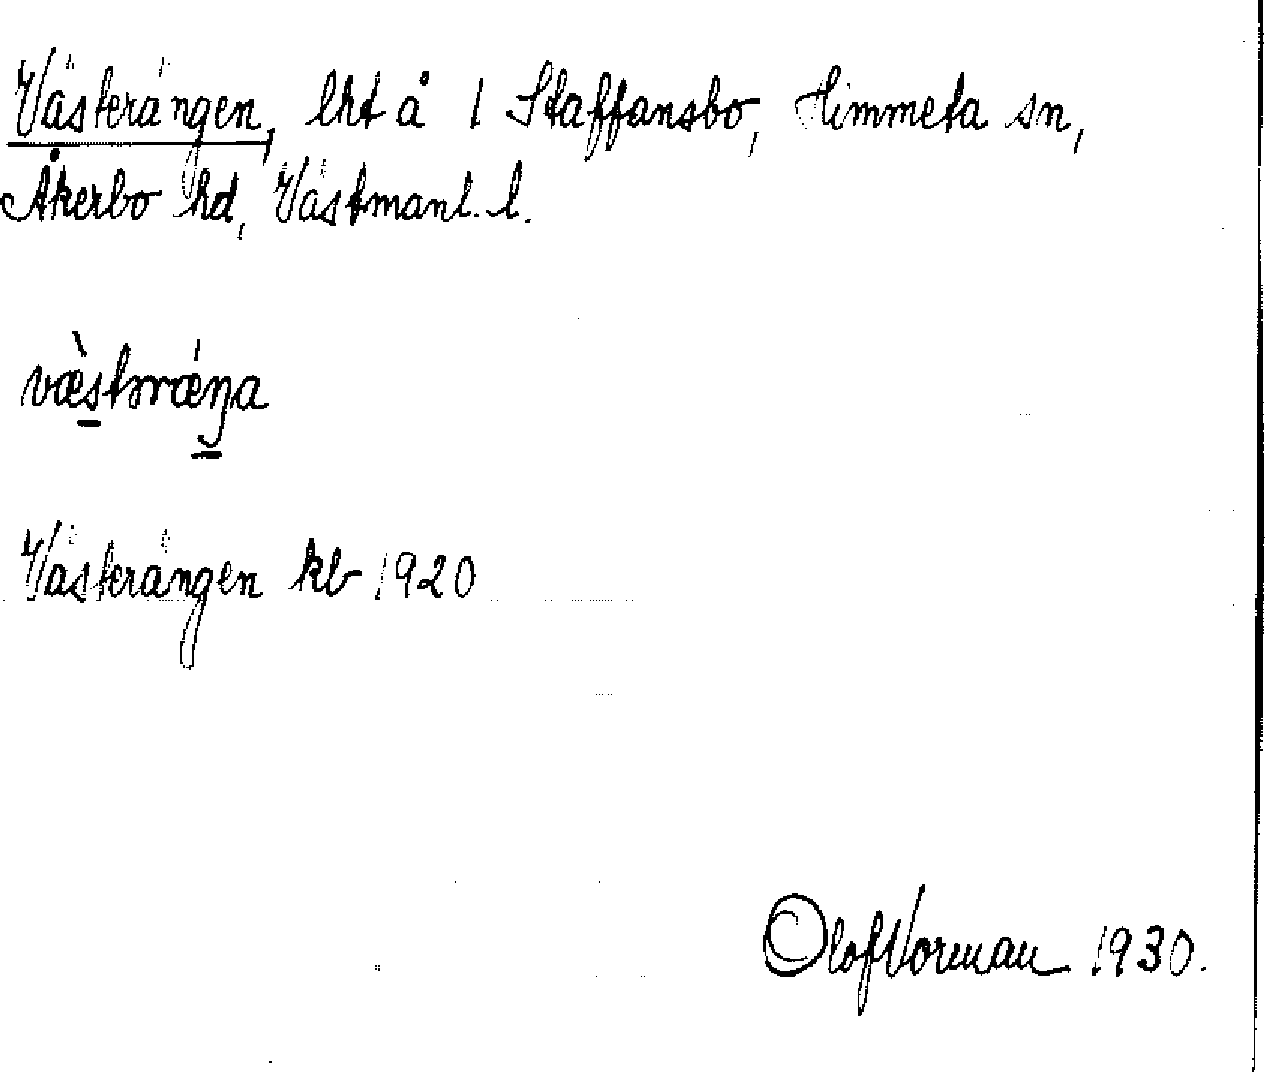 Västerängen, lht å 1 Staffansbo, Himmeta sn,
Åkerbo hd, Västmanl. l.
væ̀stərǽŋa
Västerängen kb 1920
Olof Vorman 1930.